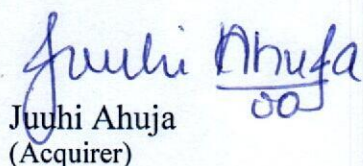 Juuhi Ahuja
Juuhi Ahuja
(Acquirer)